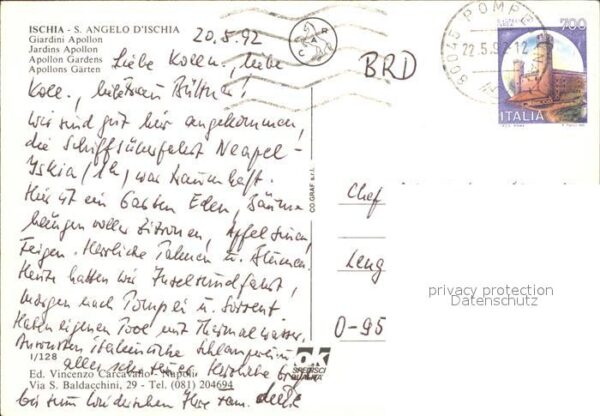 ISCHIA - S. ANGELO D'ISCHIA
Giardini Apollon
Jardins Apollon
Apollon Gardens
Apollons Gärten
20.5.92
Liebe Kolln., liebe
Koll., Büttner!
Wir sind gut hier angekommen,
die Schiffsüberfahrt Neapel-
Iskia (1h) war traumhaft.
Hier ist ein Garten Eden, Bäume
hängen voller Zitronen, Apfelsinen,
Feigen. Herrliche Palmen u. Blumen.
Heute hatten wir Inselrundfahrt,
morgen nach Pompei u. Sorrent.
Haben eigenen Pool mit Thermalwasser.
Ansonsten italienische
alles sehr teuer. Herzliche
bis zum Wiedersehen Ihre
1/128
Ed. Vincenzo Carcavallo - Napoli
Via S. Baldacchini, 29 - Tel. (081) 204694
CO.GRAF s.r.l.
SPEDISCI
QUALITÀ
CAR
BRD
80045 POMPEI
22.5.92-12
700
ITALIA
Chef
Leng
O-95
privacy protection
Datenschutz